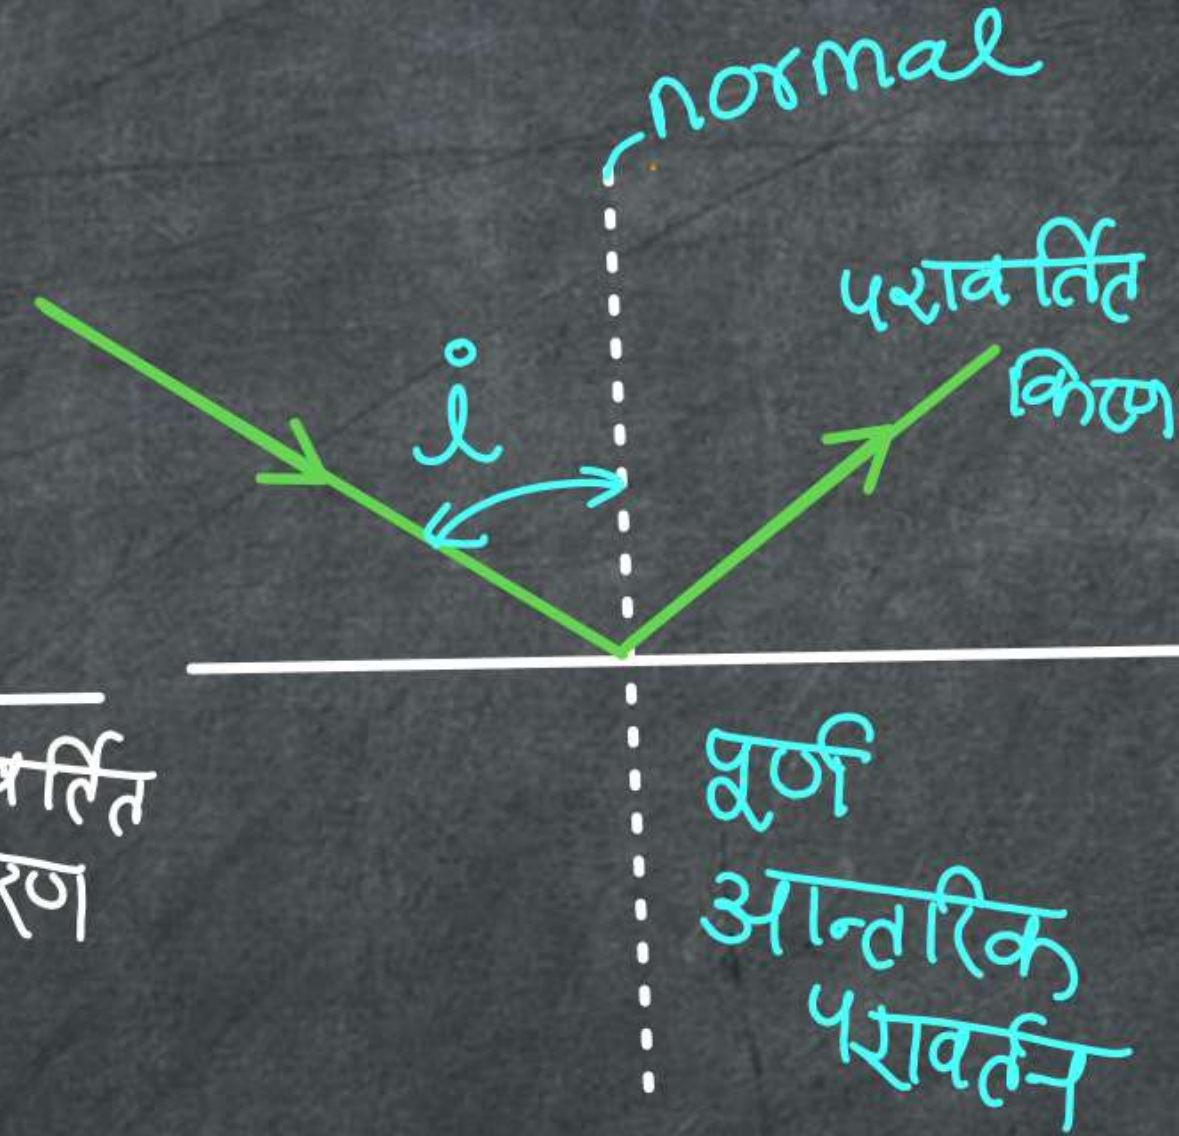 normal
परावर्तित
किरण
i
र्तित
रण
पूर्ण
आन्तरिक
परावर्तन